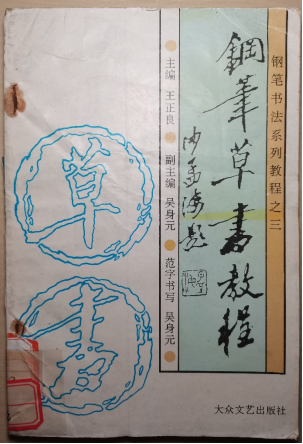 钢笔书法系列教程之三
鋼筆草書教程
沙孟海題
主编 王正良
副主编 吴身元
范字书写 吴身元
草
書
大众文艺出版社